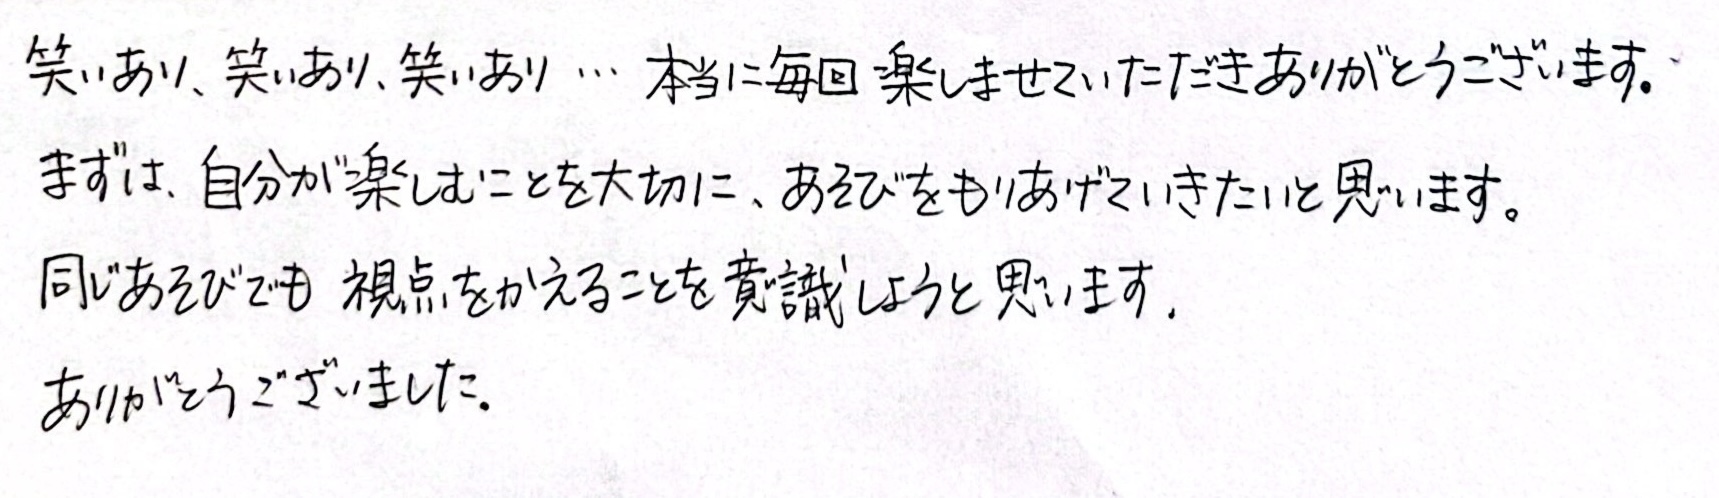 笑いあり、笑いあり、笑いあり … 本当に毎回楽しませていただきありがとうございます。
まずは、自分が楽しむことを大切に、あそびをもりあげていきたいと思います。
同じあそびでも 視点をかえることを意識しようと思います.
ありがとうございました.